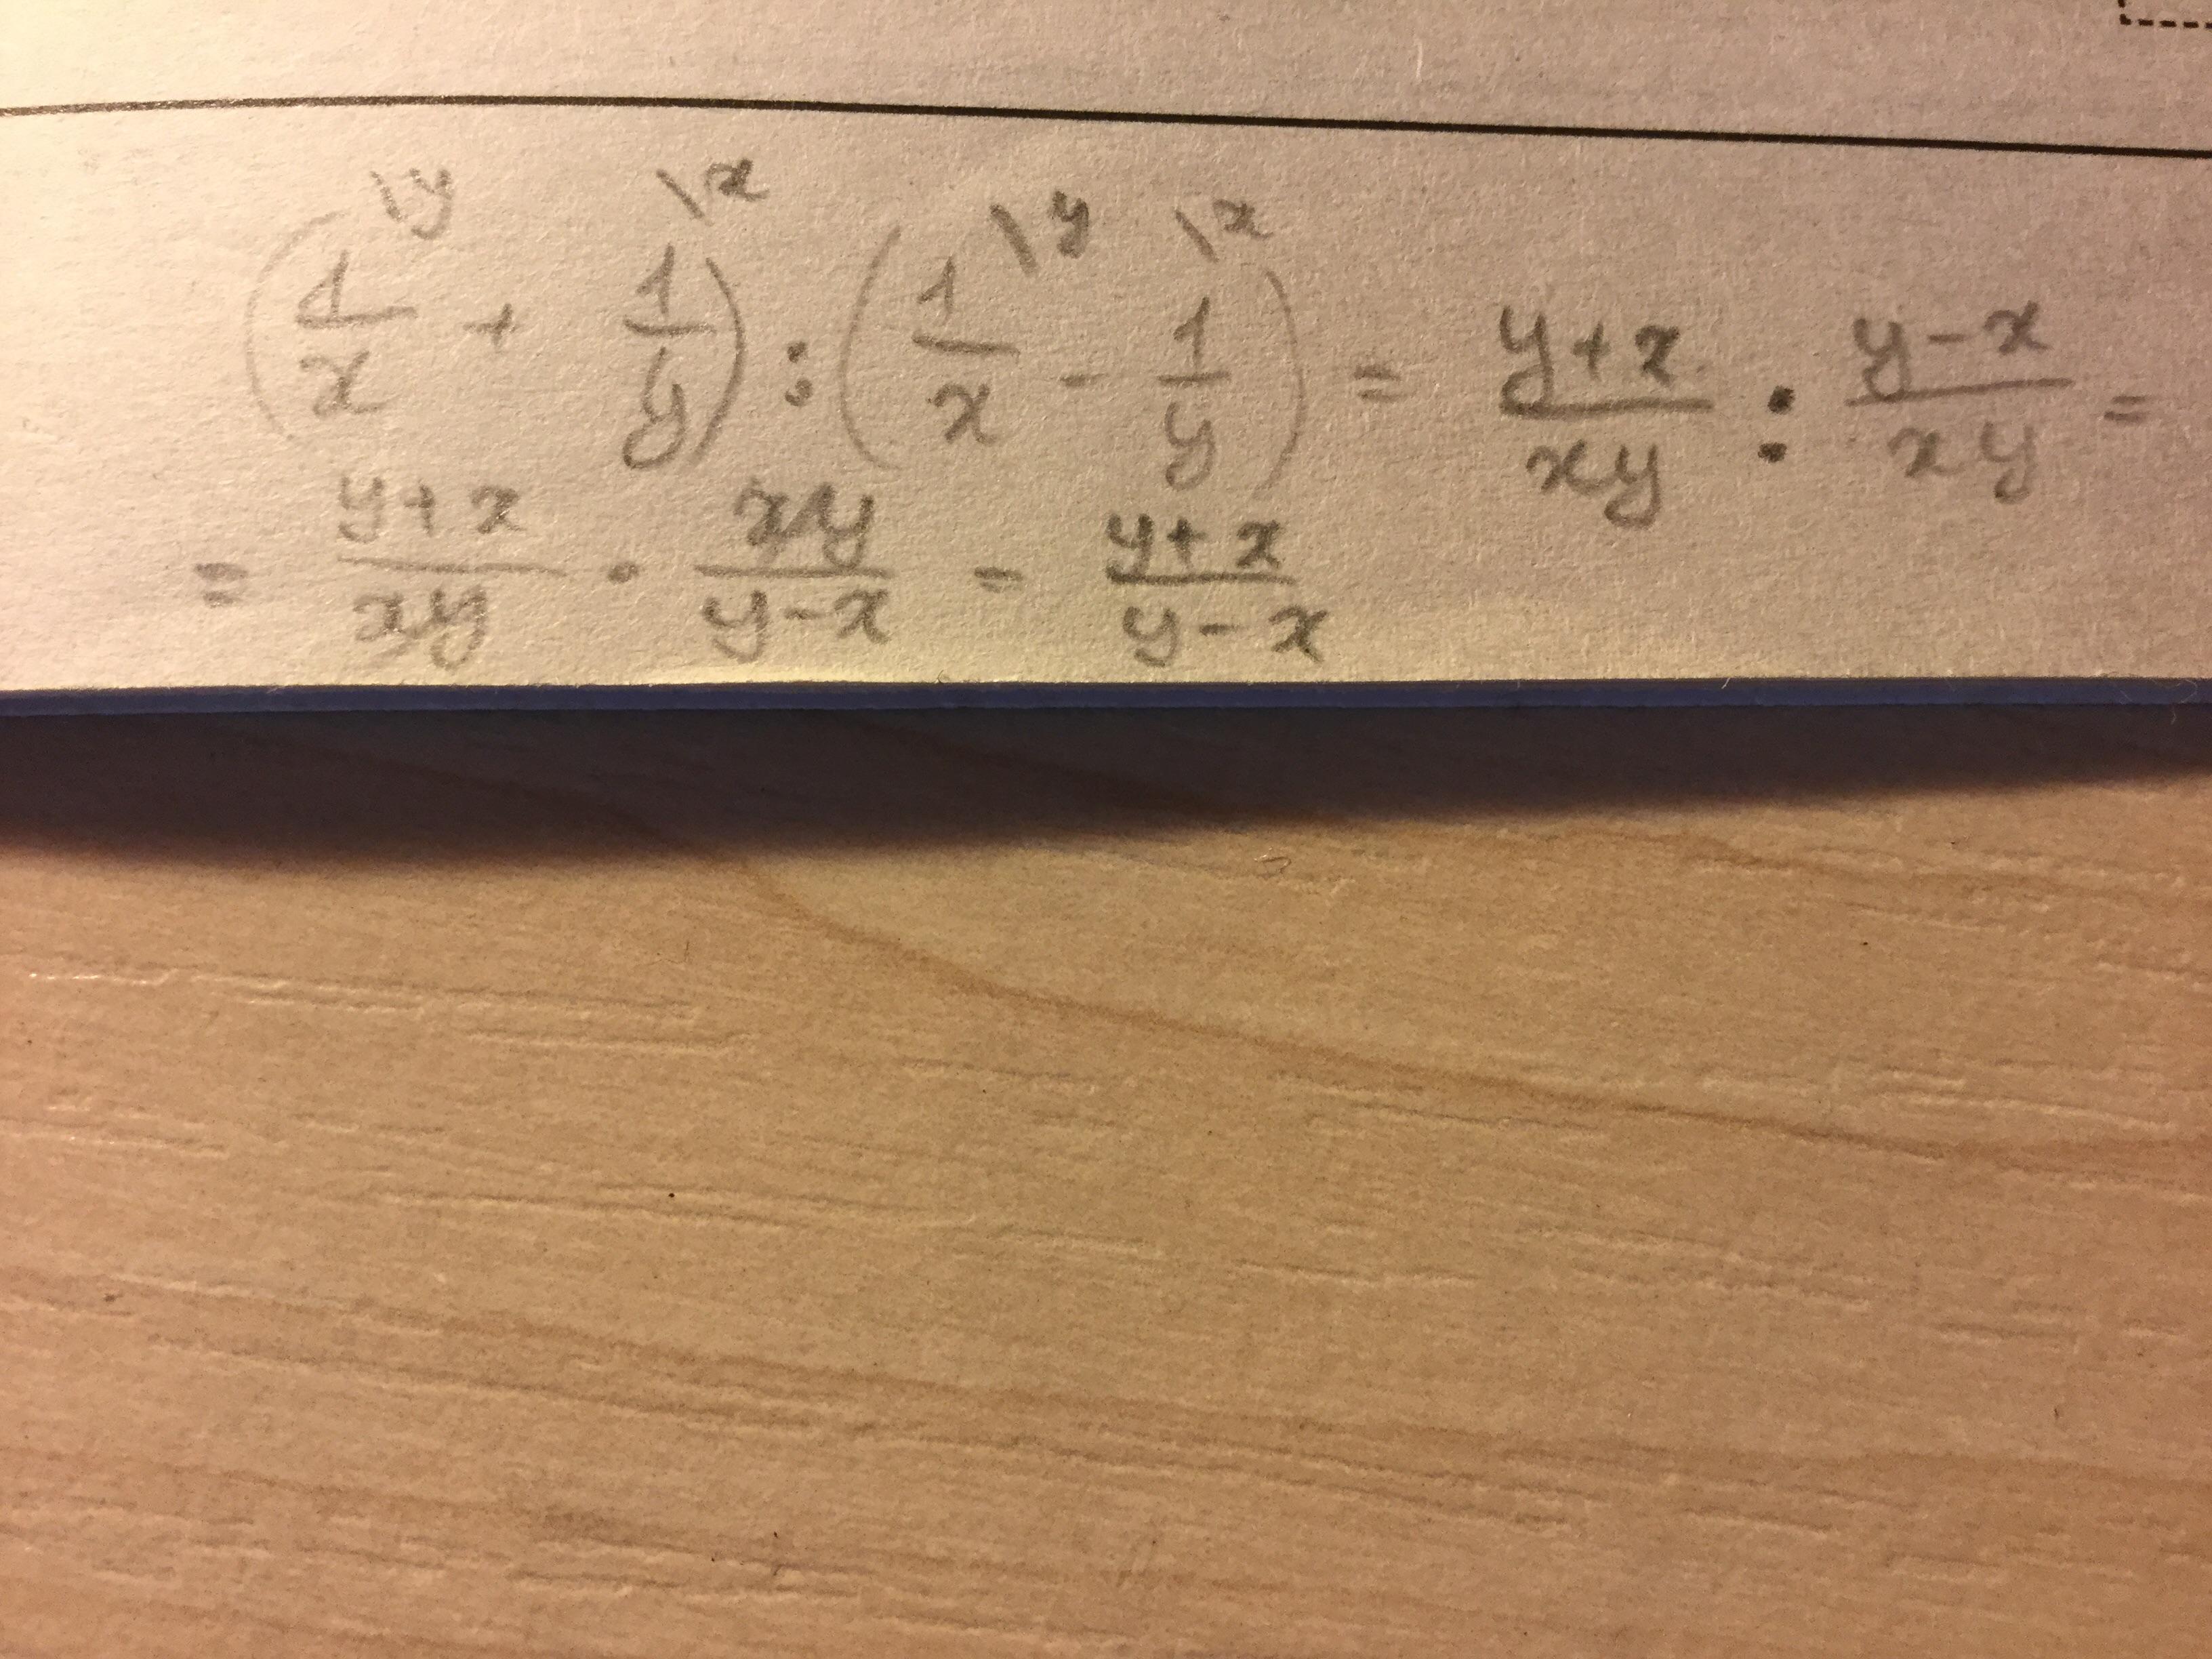 (1/x \y + 1/y \x) : (1/x \y - 1/y \x) = y+x/xy : y-x/xy =
= y+x/xy · xy/y-x = y+x/y-x